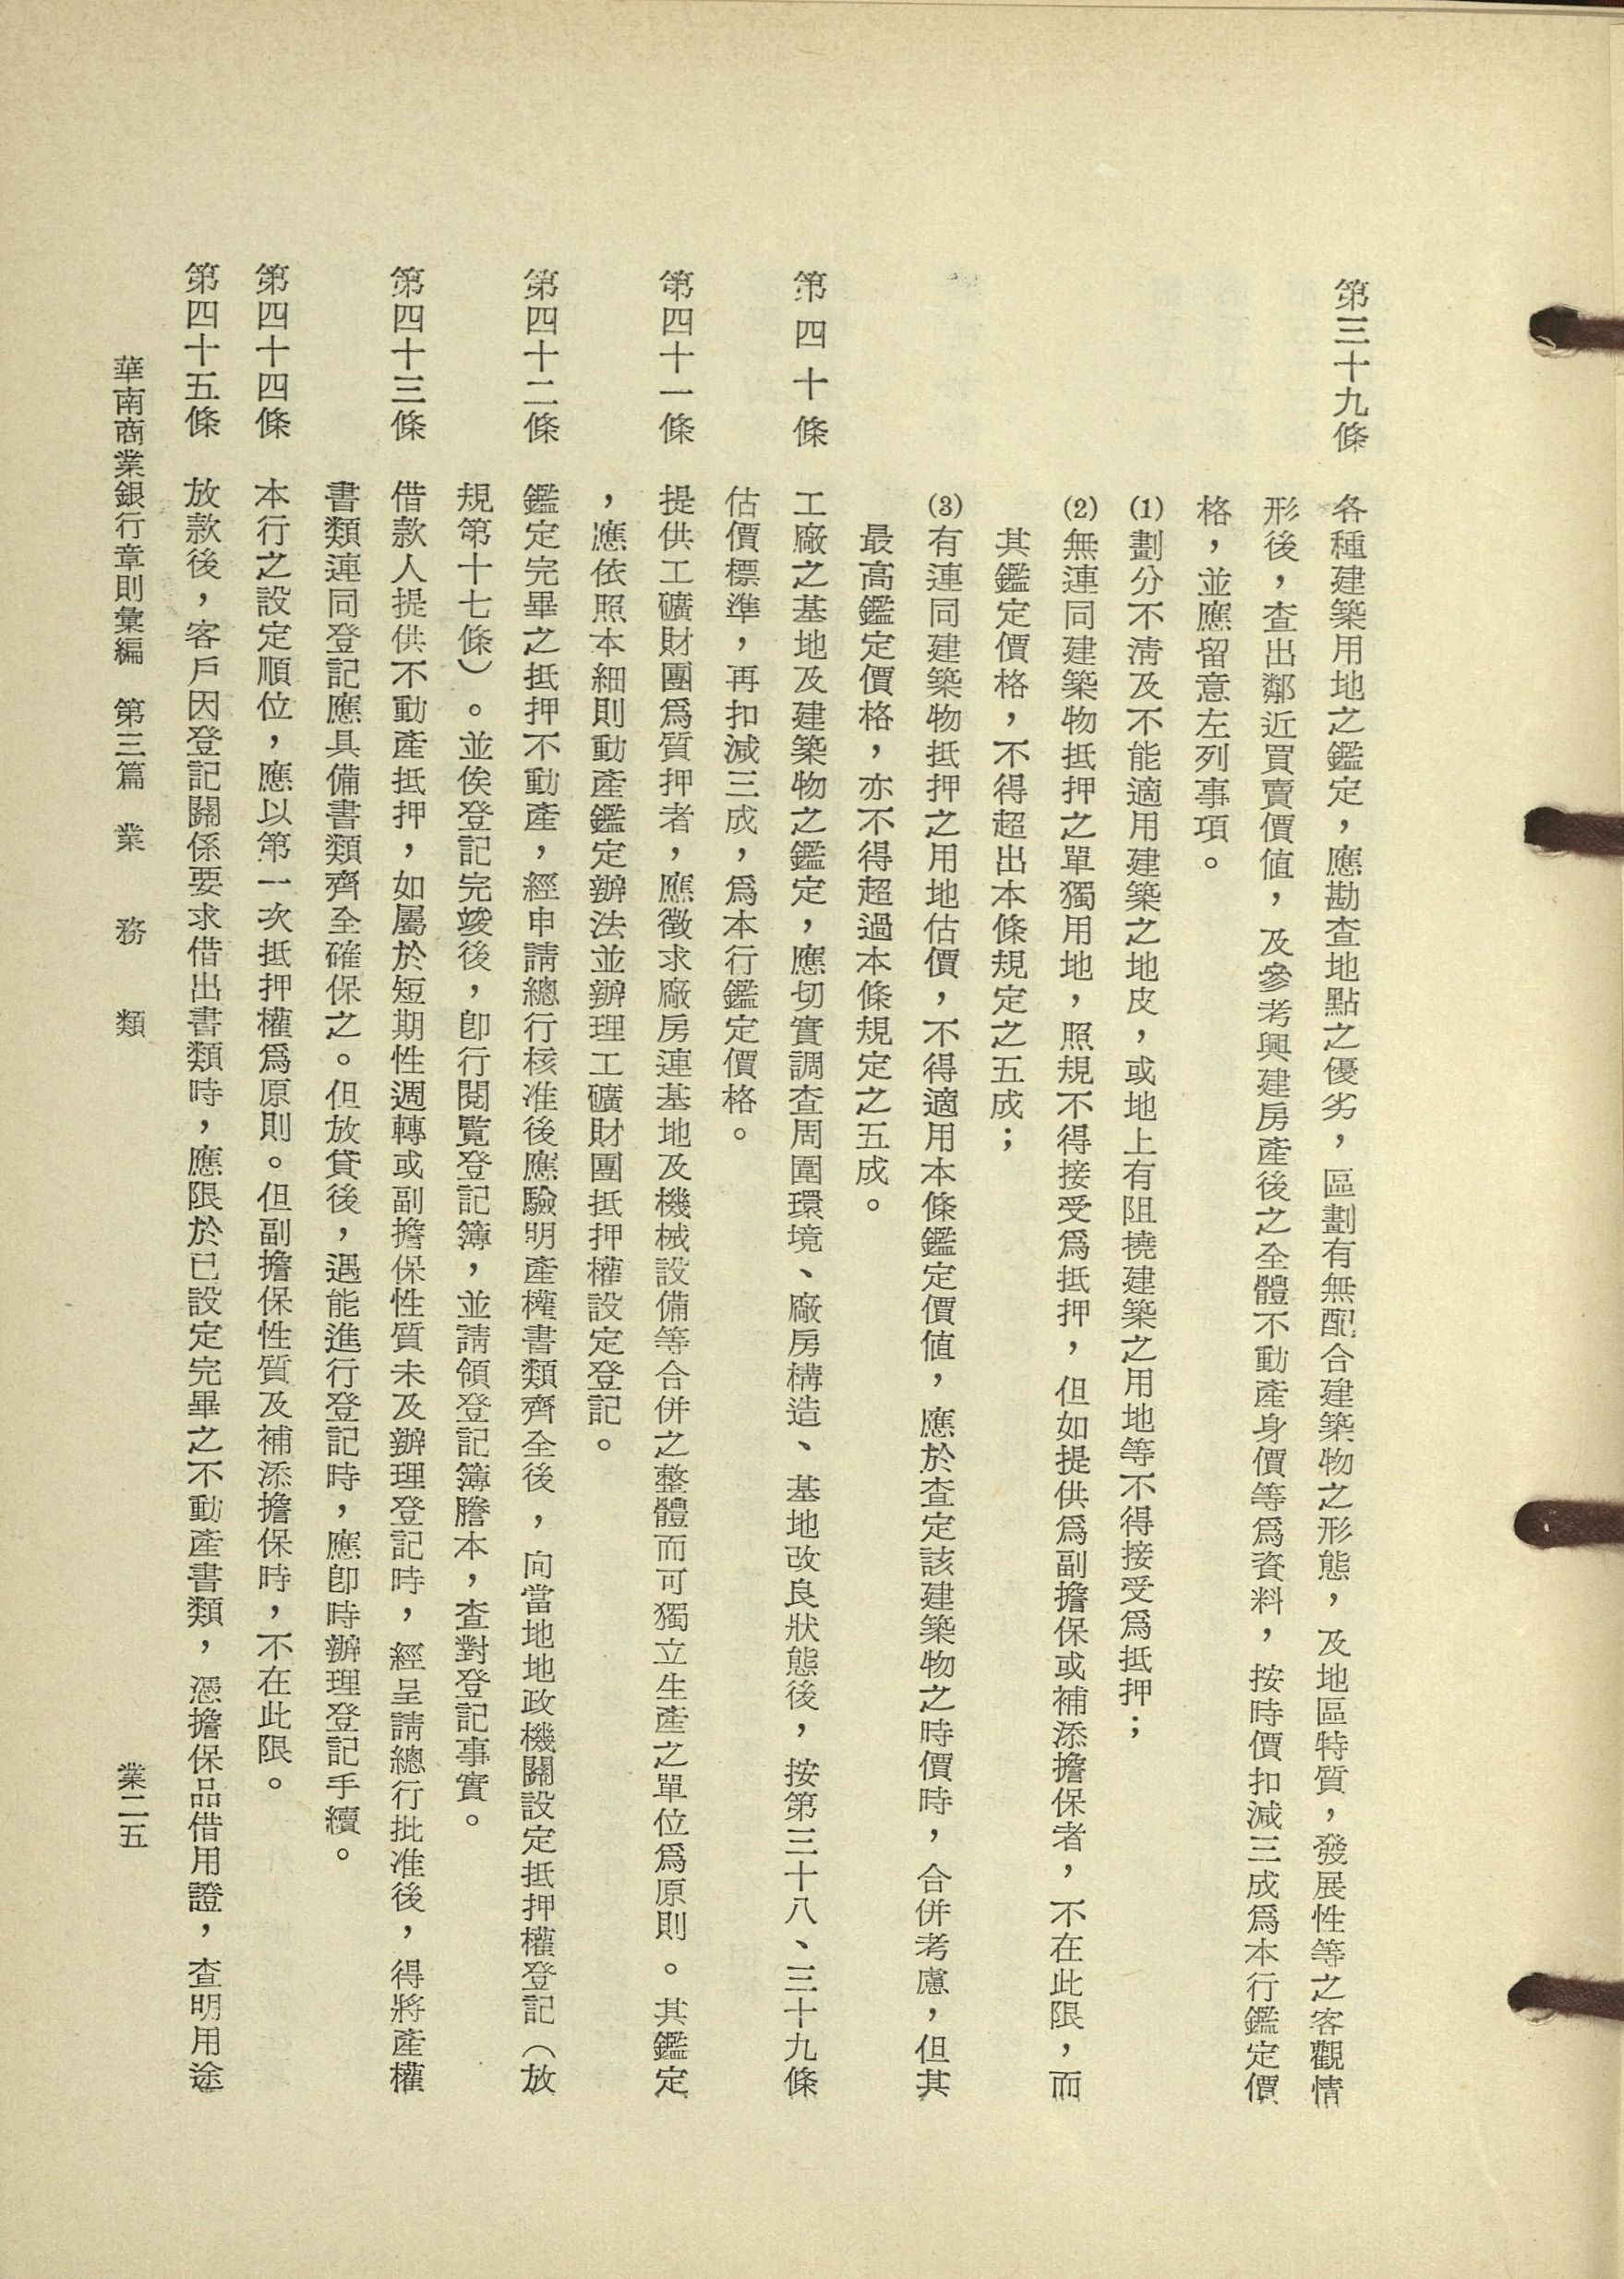 第三十九條　各種建築用地之鑑定，應勘查地點之優劣，區劃有無配合建築物之形態，及地區特質，發展性等之客觀情
形後，查出鄰近買賣價值，及參考興建房產後之全體不動產身價等爲資料，按時價扣減三成爲本行鑑定價
格，並應留意左列事項。
⑴劃分不淸及不能適用建築之地皮，或地上有阻撓建築之用地等不得接受爲抵押；
⑵無連同建築物抵押之單獨用地，照規不得接受爲抵押，但如提供爲副擔保或補添擔保者，不在此限，而
其鑑定價格，不得超出本條規定之五成；
⑶有連同建築物抵押之用地估價，不得適用本條鑑定價值，應於查定該建築物之時價時，合併考慮，但其
最高鑑定價格，亦不得超過本條規定之五成。
第四十條　工廠之基地及建築物之鑑定，應切實調查周圍環境、廠房構造、基地改良狀態後，按第三十八、三十九條
估價標準，再扣減三成，爲本行鑑定價格。
第四十一條　提供工礦財團爲質押者，應徵求廠房連基地及機械設備等合併之整體而可獨立生產之單位爲原則。其鑑定
，應依照本細則動產鑑定辦法並辦理工礦財團抵押權設定登記。
第四十二條　鑑定完畢之抵押不動產，經申請總行核准後應驗明產權書類齊全後，向當地地政機關設定抵押權登記（放
規第十七條）。並俟登記完竣後，卽行閱覽登記簿，並請領登記簿謄本，查對登記事實。
第四十三條　借款人提供不動產抵押，如屬於短期性週轉或副擔保性質未及辦理登記時，經呈請總行批准後，得將產權
書類連同登記應具備書類齊全確保之。但放貸後，遇能進行登記時，應卽時辦理登記手續。
第四十四條　本行之設定順位，應以第一次抵押權爲原則。但副擔保性質及補添擔保時，不在此限。
第四十五條　放款後，客戶因登記關係要求借出書類時，應限於已設定完畢之不動產書類，憑擔保品借用證，查明用途
華南商業銀行章則彙編　第三篇　業務類　業二五